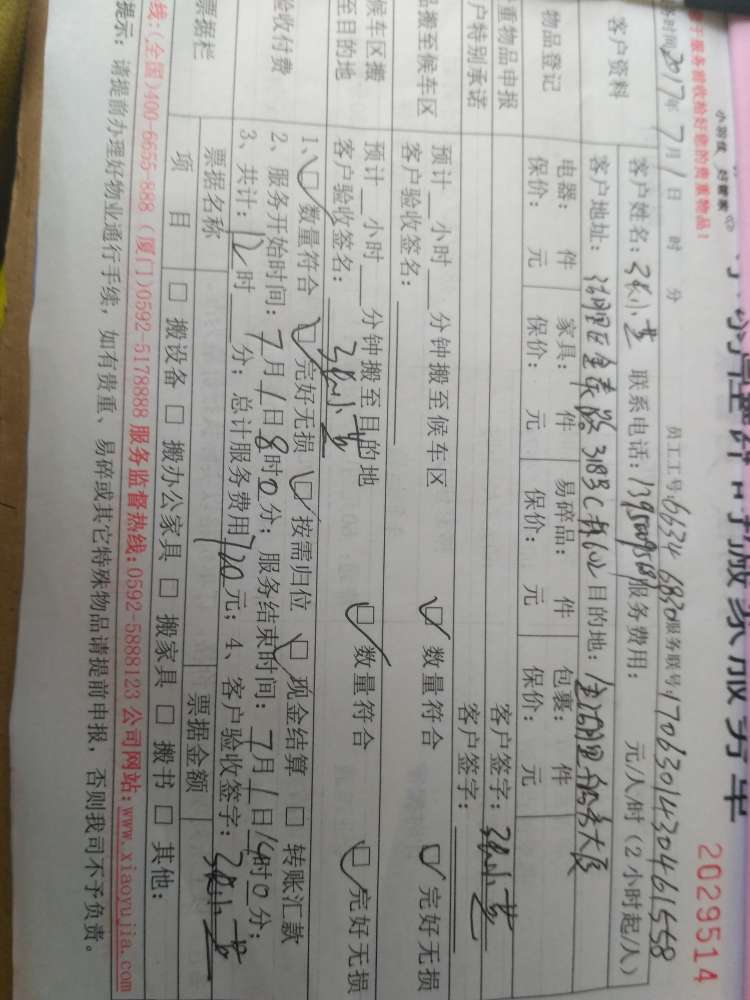 2029514
于服务前收拾好您的贵重物品！
时间2017年7月1日 时 分 员工工号:6634 6830服务联号:1706301430461558
客户资料 客户姓名:张小芝 联系电话: 服务费用: 元/人/时（2小时起/人）
客户地址: 318号 目的地:
物品登记 电器: 件 家具: 件 易碎品: 件 包裹: 件
保价: 元 保价: 元 保价: 元 保价: 元
重物品申报 客户签字:张小芝
户特别承诺 客户签字:
品搬至候车区 预计 小时 分钟搬至候车区 数量符合 完好无损
客户验收签名:
候车区搬至目的地 预计 小时 分钟搬至目的地 数量符合 完好无损
客户验收签名:张小芝
验收付费 1、数量符合 完好无损 按需归位 现金结算 转账汇款
2、服务开始时间:7月1日8时0分；服务结束时间:7月1日14时0分；
3、共计:12时 分；总计服务费用720元；4、客户验收签字:张小芝
票据栏 票据名称 票据金额
项目 搬设备 搬办公家具 搬家具 搬书 其他:
线:(全国)400-6655-888（厦门)0592-5178888 服务监督热线:0592-5888123 公司网站:www.xiaoyujia.com
提示: 请提前办理好物业通行手续，如有贵重、易碎或其它特殊物品请提前申报，否则我司不予负责。